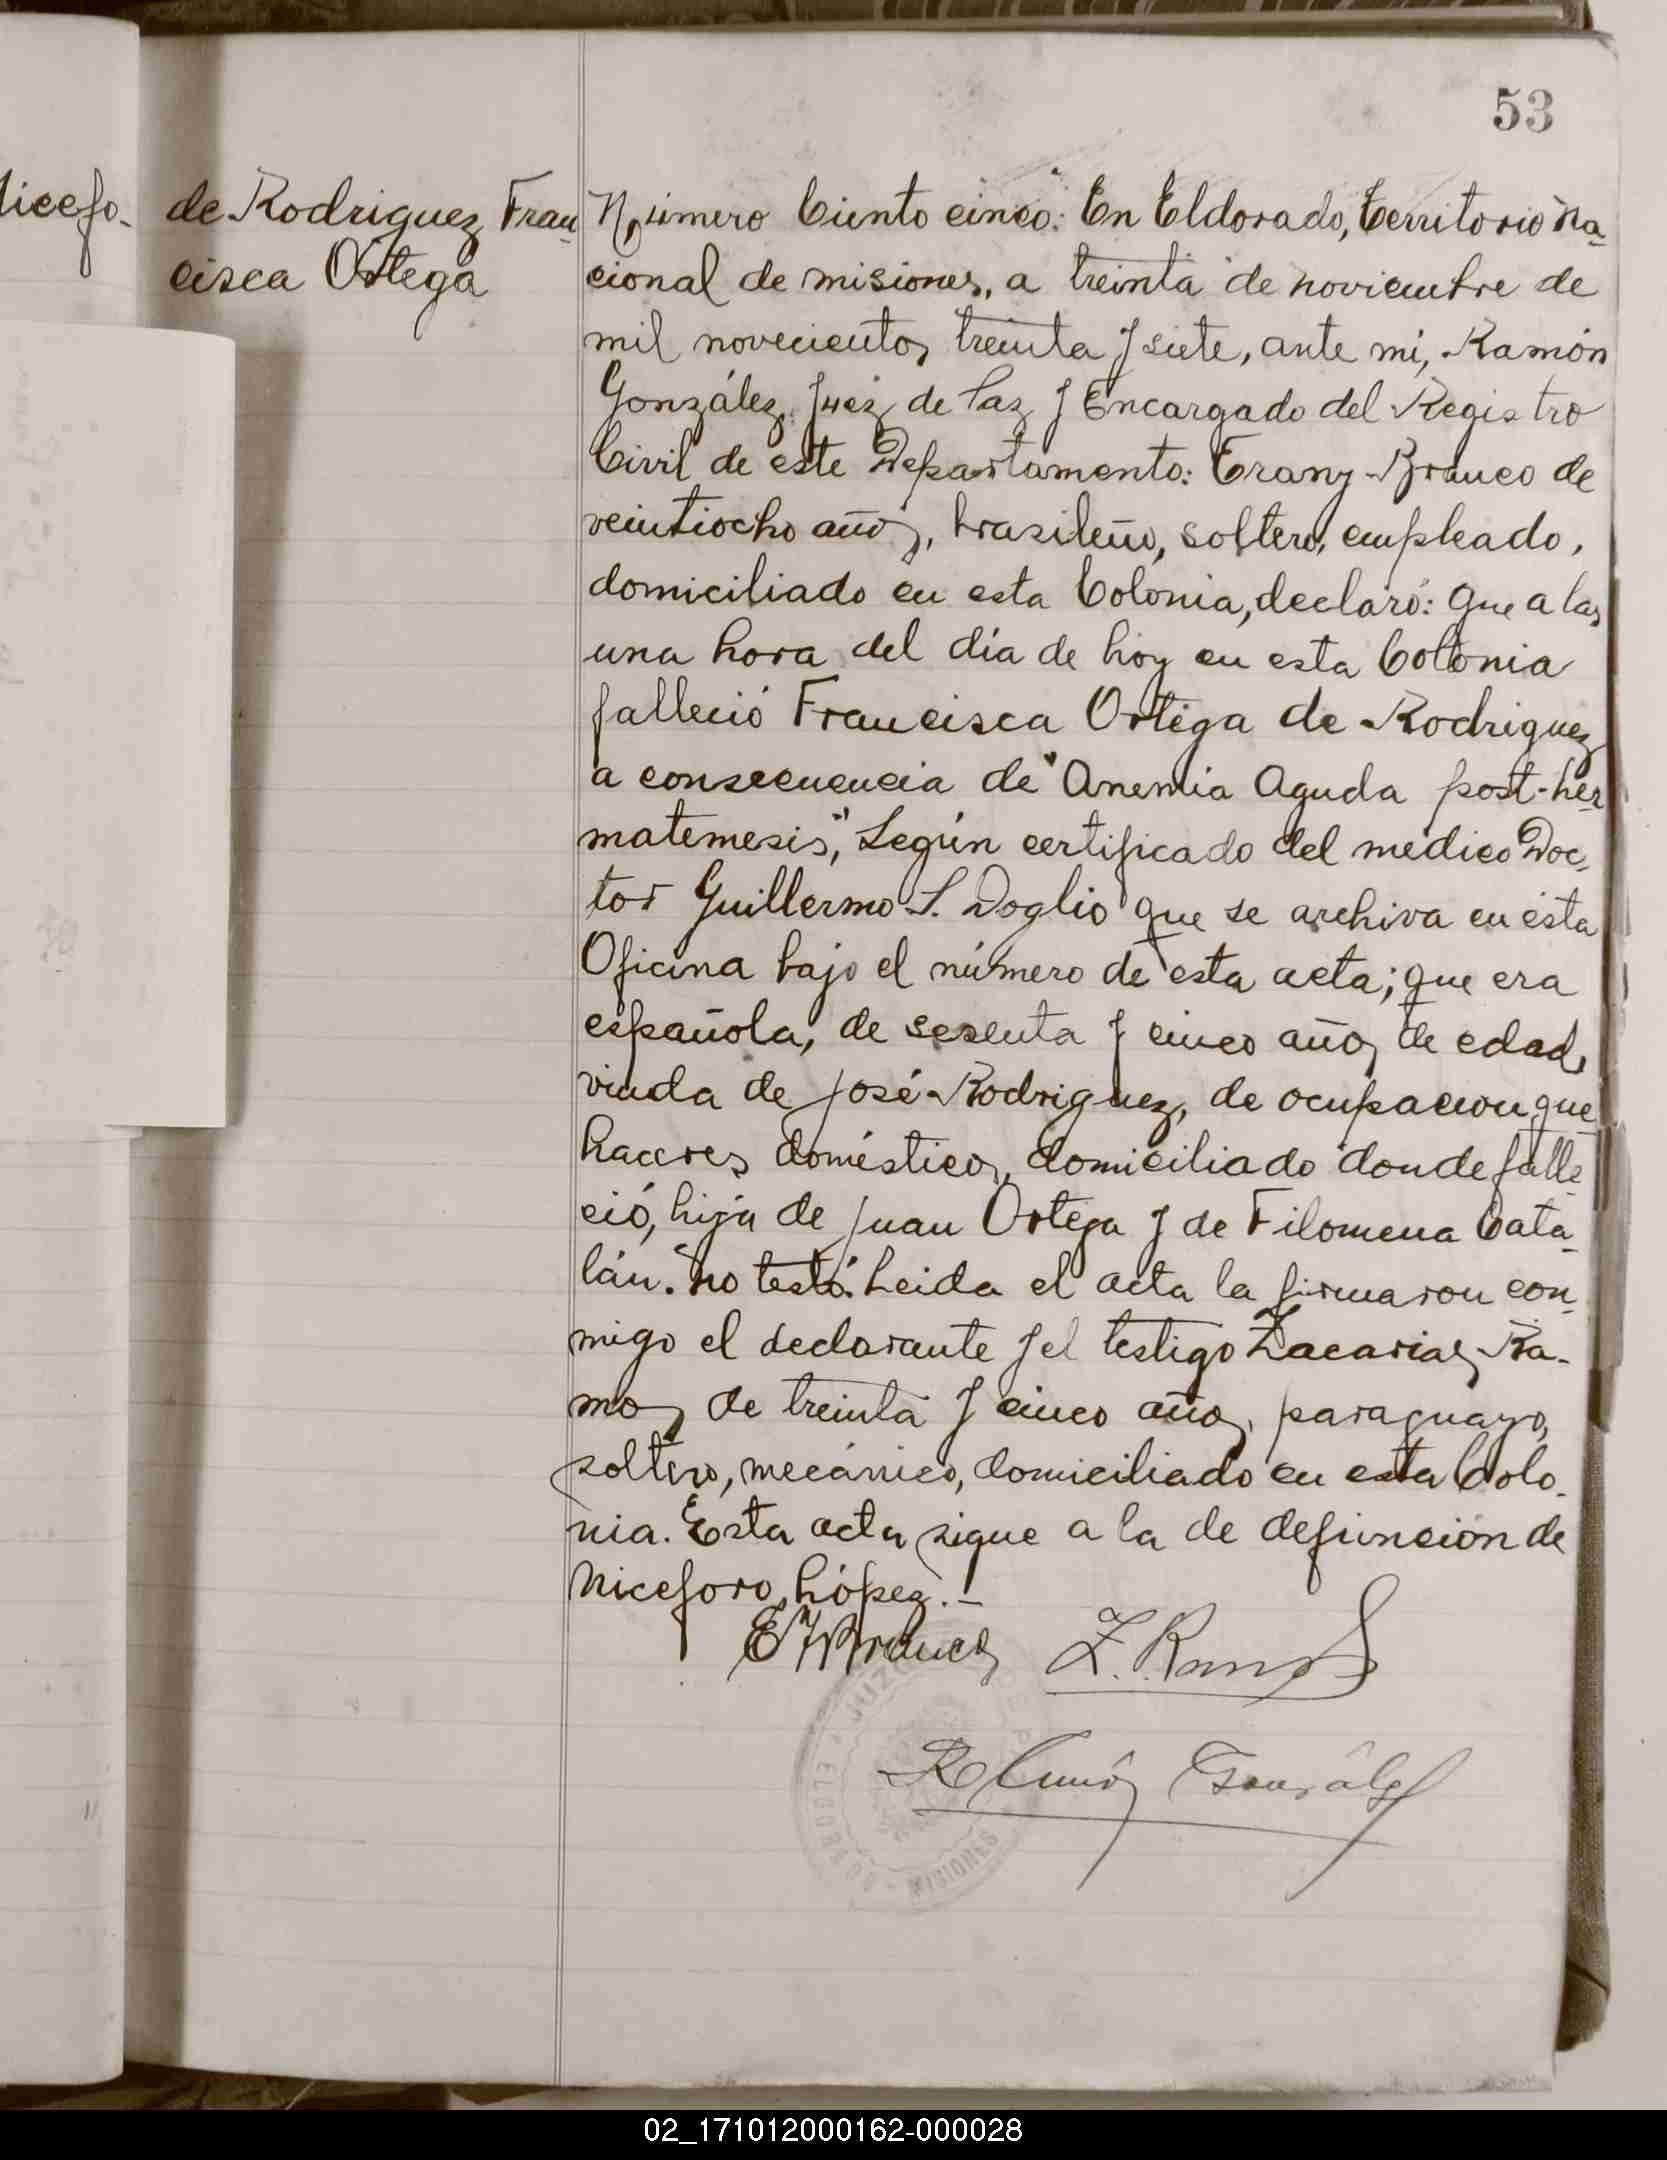 53
de Rodriguez Fran
cisca Ortega
Número Ciento cinco: En Eldorado, Territorio Na-
cional de misiones, a treinta de noviembre de
mil novecientos treinta y siete, ante mi, Ramón
González, Juez de Paz y Encargado del Registro
Civil de este Departamento: Erany Branco de
veintiocho años, brasileño, soltero, empleado,
domiciliado en esta Colonia, declaró: Que a las
una hora del día de hoy en esta Colonia
falleció Francisca Ortega de Rodriguez
a consecuencia de "Anemia Aguda post-he-
matemesis", Según certificado del medico Doc-
tor Guillermo S. Doglio que se archiva en esta
Oficina bajo el número de esta acta; que era
española, de sesenta y cinco años de edad,
viuda de José Rodriguez, de ocupacion que
haceres domésticos, domiciliado donde falle-
ció, hija de Juan Ortega y de Filomena Cata-
lán. No testó. Leida el acta la firmaron con-
migo el declarante y el testigo Zacarias Ra-
mos de treinta y cinco años, paraguayo,
soltero, mecánico, domiciliado en esta Colo-
nia. Esta acta sigue a la de defunción de
Niceforo López.-
Z. Ramos
Ramón González
02_171012000162-000028